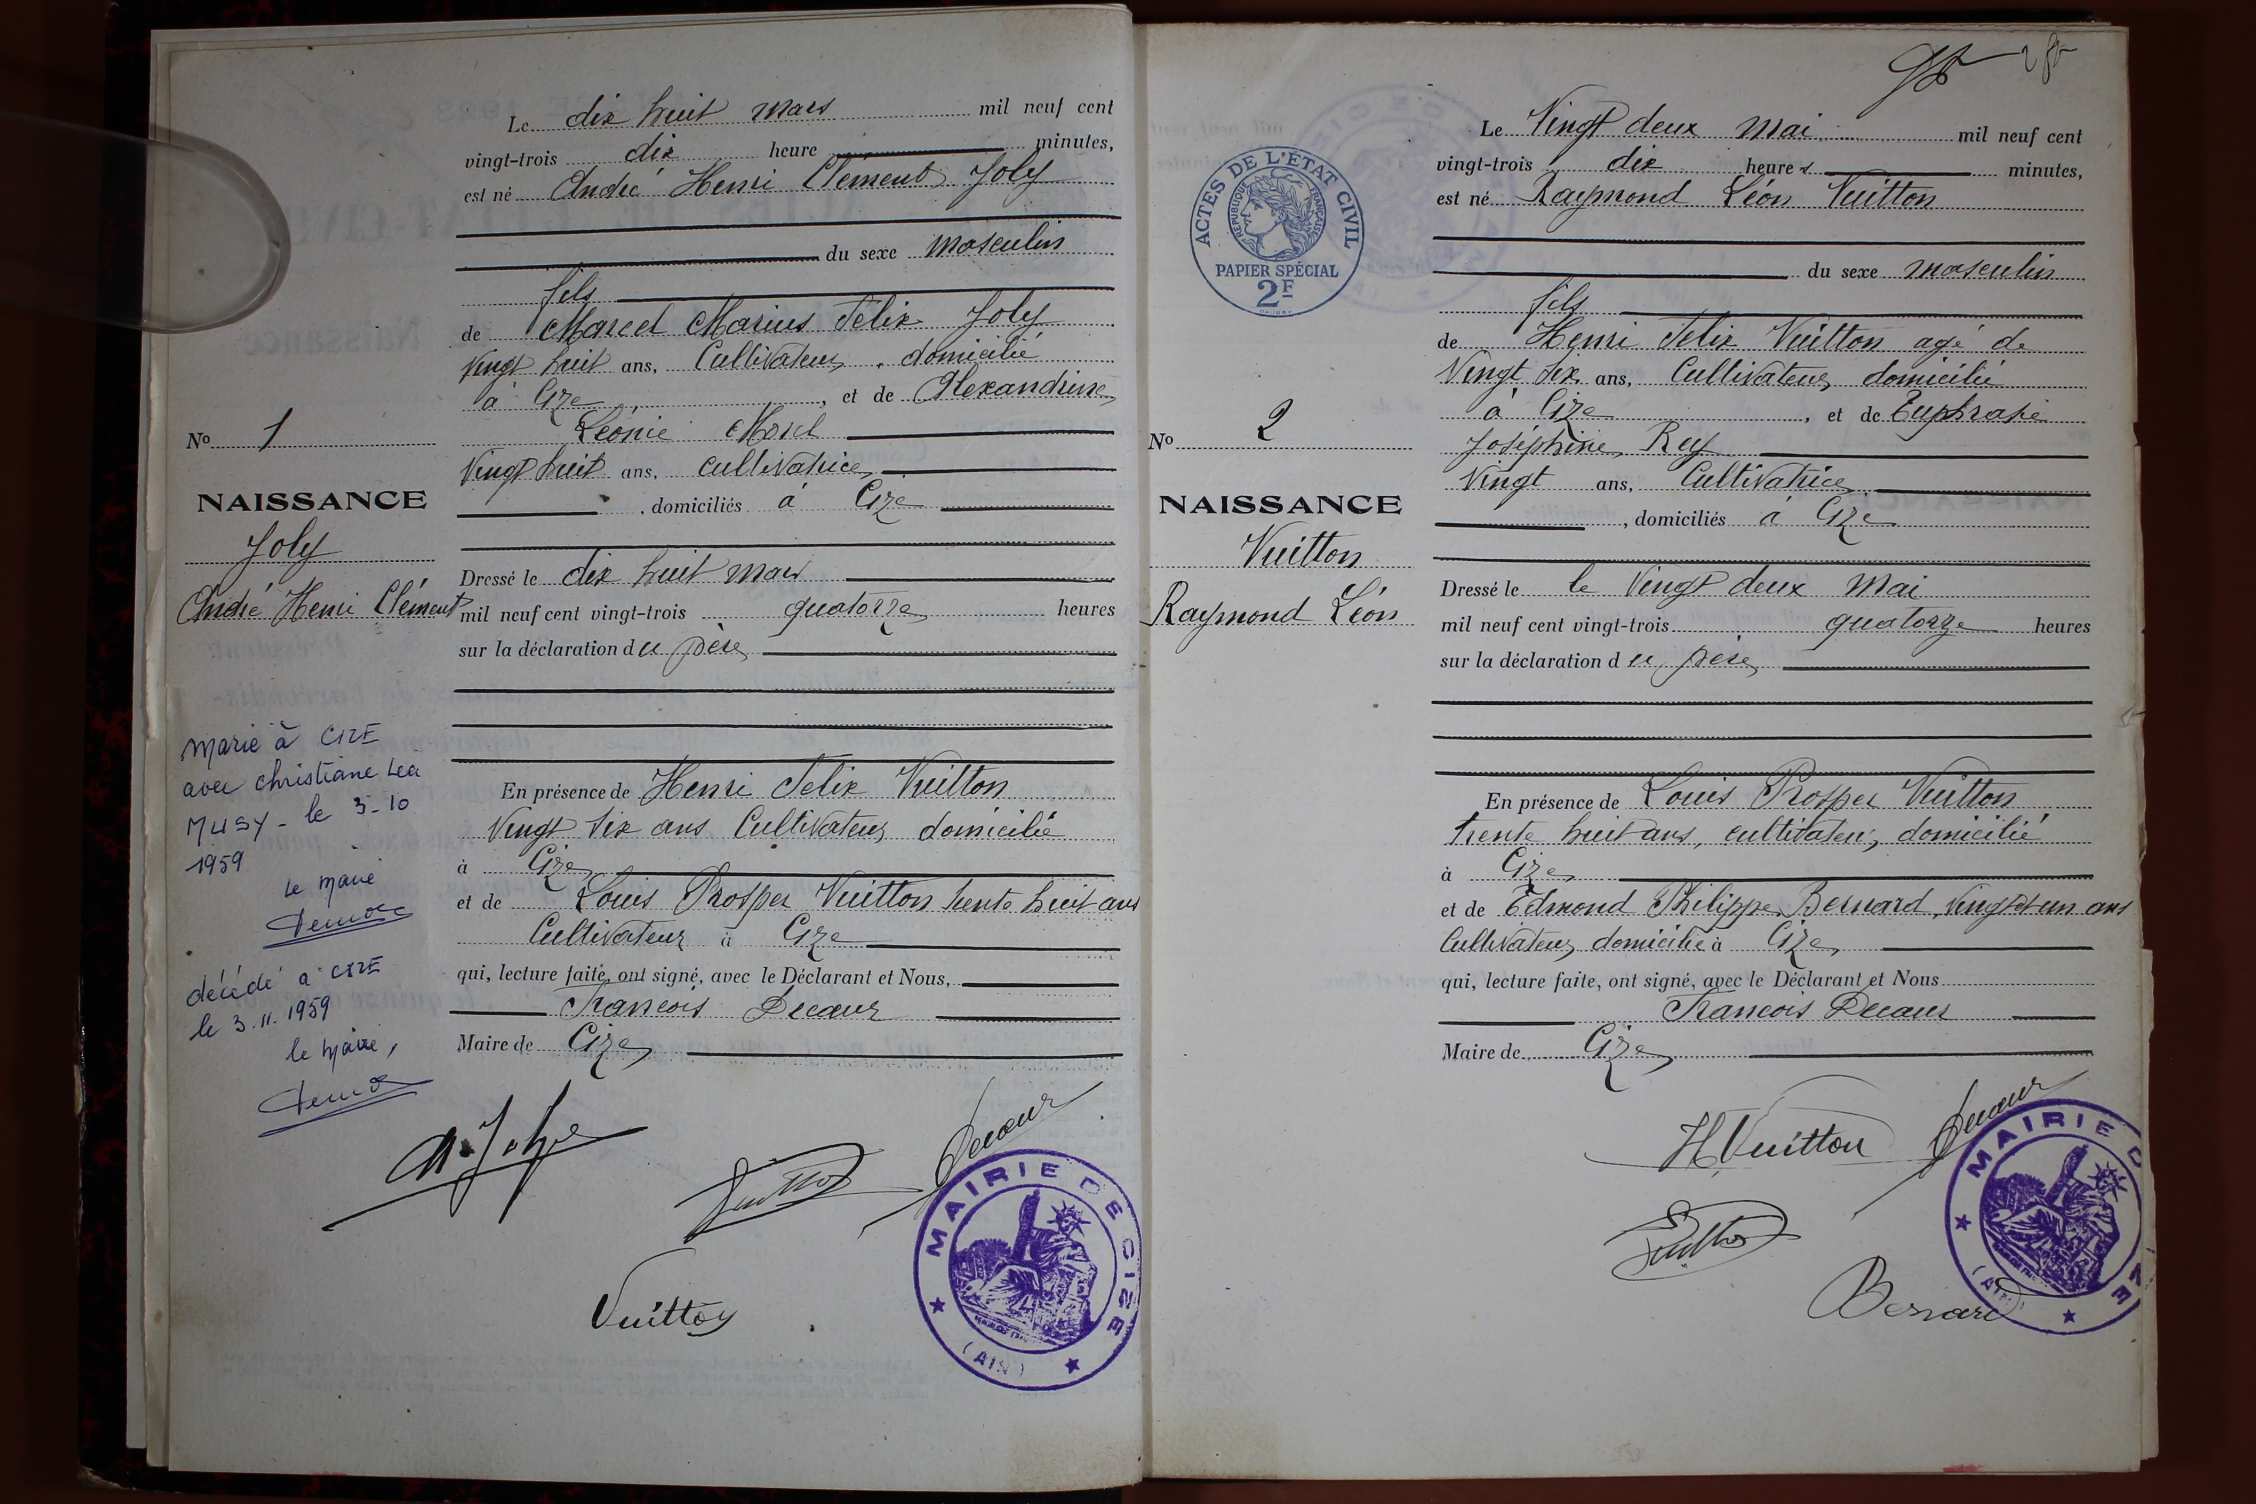 Le dix huit mars mil neuf cent
vingt-trois dix heure minutes,
est né André Henri Clément Joly
du sexe masculin
fils
de Marcel Marius Félix Joly
Vingt huit ans, Cultivateur, domicilié
à Cize, et de Alexandrine
Léonie Morel
Vingt huit ans, cultivatrice
, domiciliés à Cize
Dressé le dix huit mars
mil neuf cent vingt-trois quatorze heures
sur la déclaration du père
En présence de Henri Felix Vuitton
Vingt six ans Cultivateur domicilié
à Cize
et de Louis Prosper Vuitton trente huit ans
Cultivateur à Cize
qui, lecture faite, ont signé, avec le Déclarant et Nous,
Francois Decœur
Maire de Cize
No 1
NAISSANCE
Joly
André Henri Clément
Marié à CIZE
avec christiane Lea
MUSY - le 3-10
1959
Le Maire
décédé à CIZE
le 3.11.1959
le Maire,
Decœur
Vuitton
MAIRIE DE CIZE
(AIN)
Le Vingt deux Mai mil neuf cent
vingt-trois dix heures minutes,
est né Raymond Léon Vuitton
du sexe masculin
fils
de Henri Felix Vuitton agé de
Vingt six ans, Cultivateur domicilié
à Cize, et de Euphrasie
Joséphine Rey
Vingt ans, Cultivatrice
, domiciliés à Cize
Dressé le le Vingt deux Mai
mil neuf cent vingt-trois quatorze heures
sur la déclaration du père
En présence de Louis Prosper Vuitton
trente huit ans, cultivateur, domicilié
à Cize
et de Edmond Philippe Bernard, Vingt et un ans
Cultivateur, domicilié à Cize
qui, lecture faite, ont signé, avec le Déclarant et Nous
Francois Decœur
Maire de Cize
ACTES DE L'ÉTAT CIVIL
RÉPUBLIQUE FRANÇAISE
PAPIER SPÉCIAL
2F
No 2
NAISSANCE
Vuitton
Raymond Léon
H Vuitton
Decœur
Bernard
MAIRIE D
ZE
(AIN)